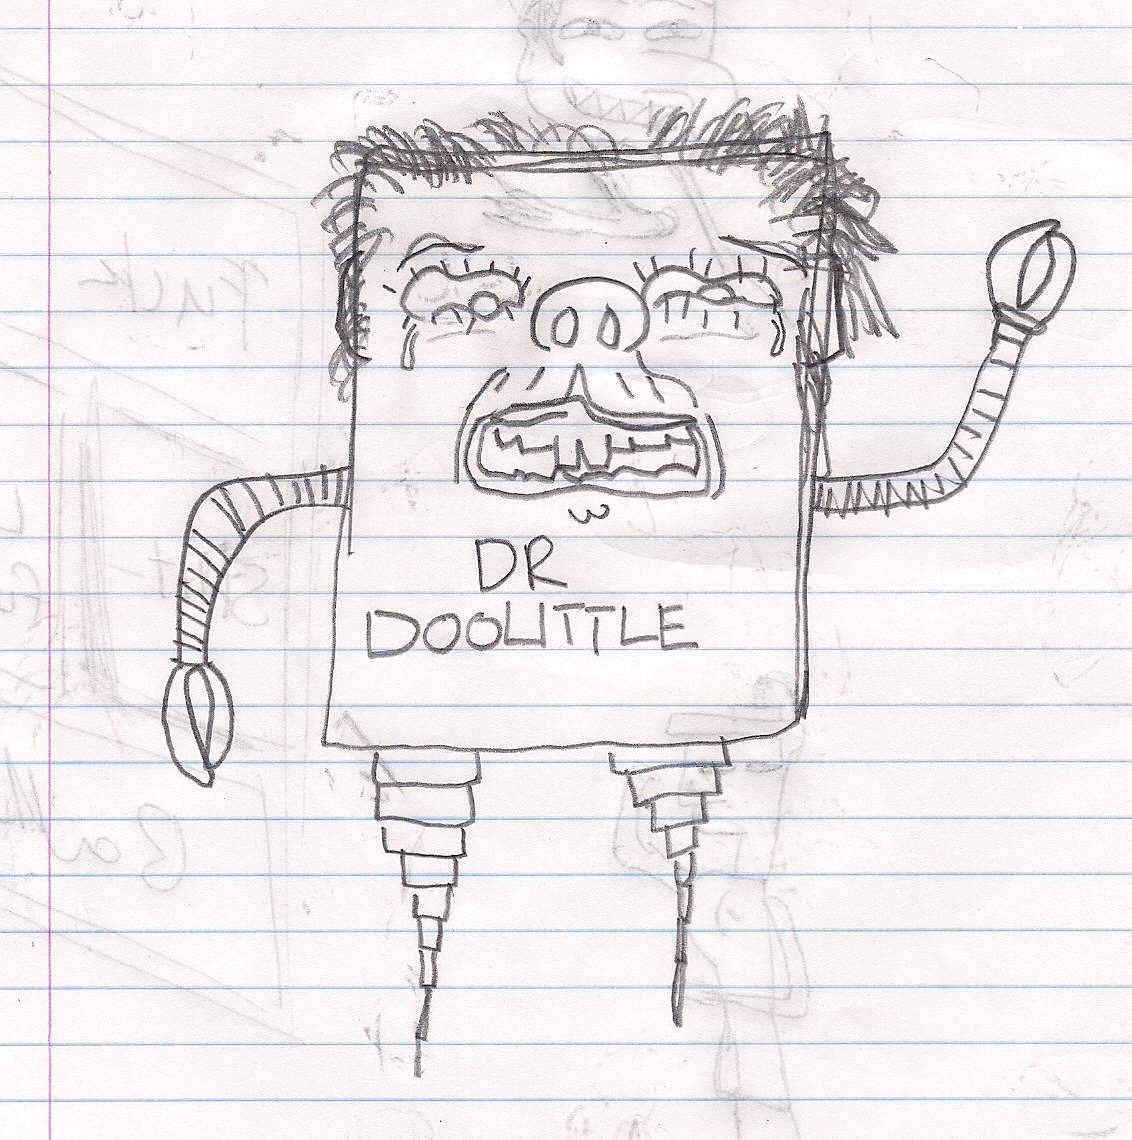 DR
DOOLITTLE